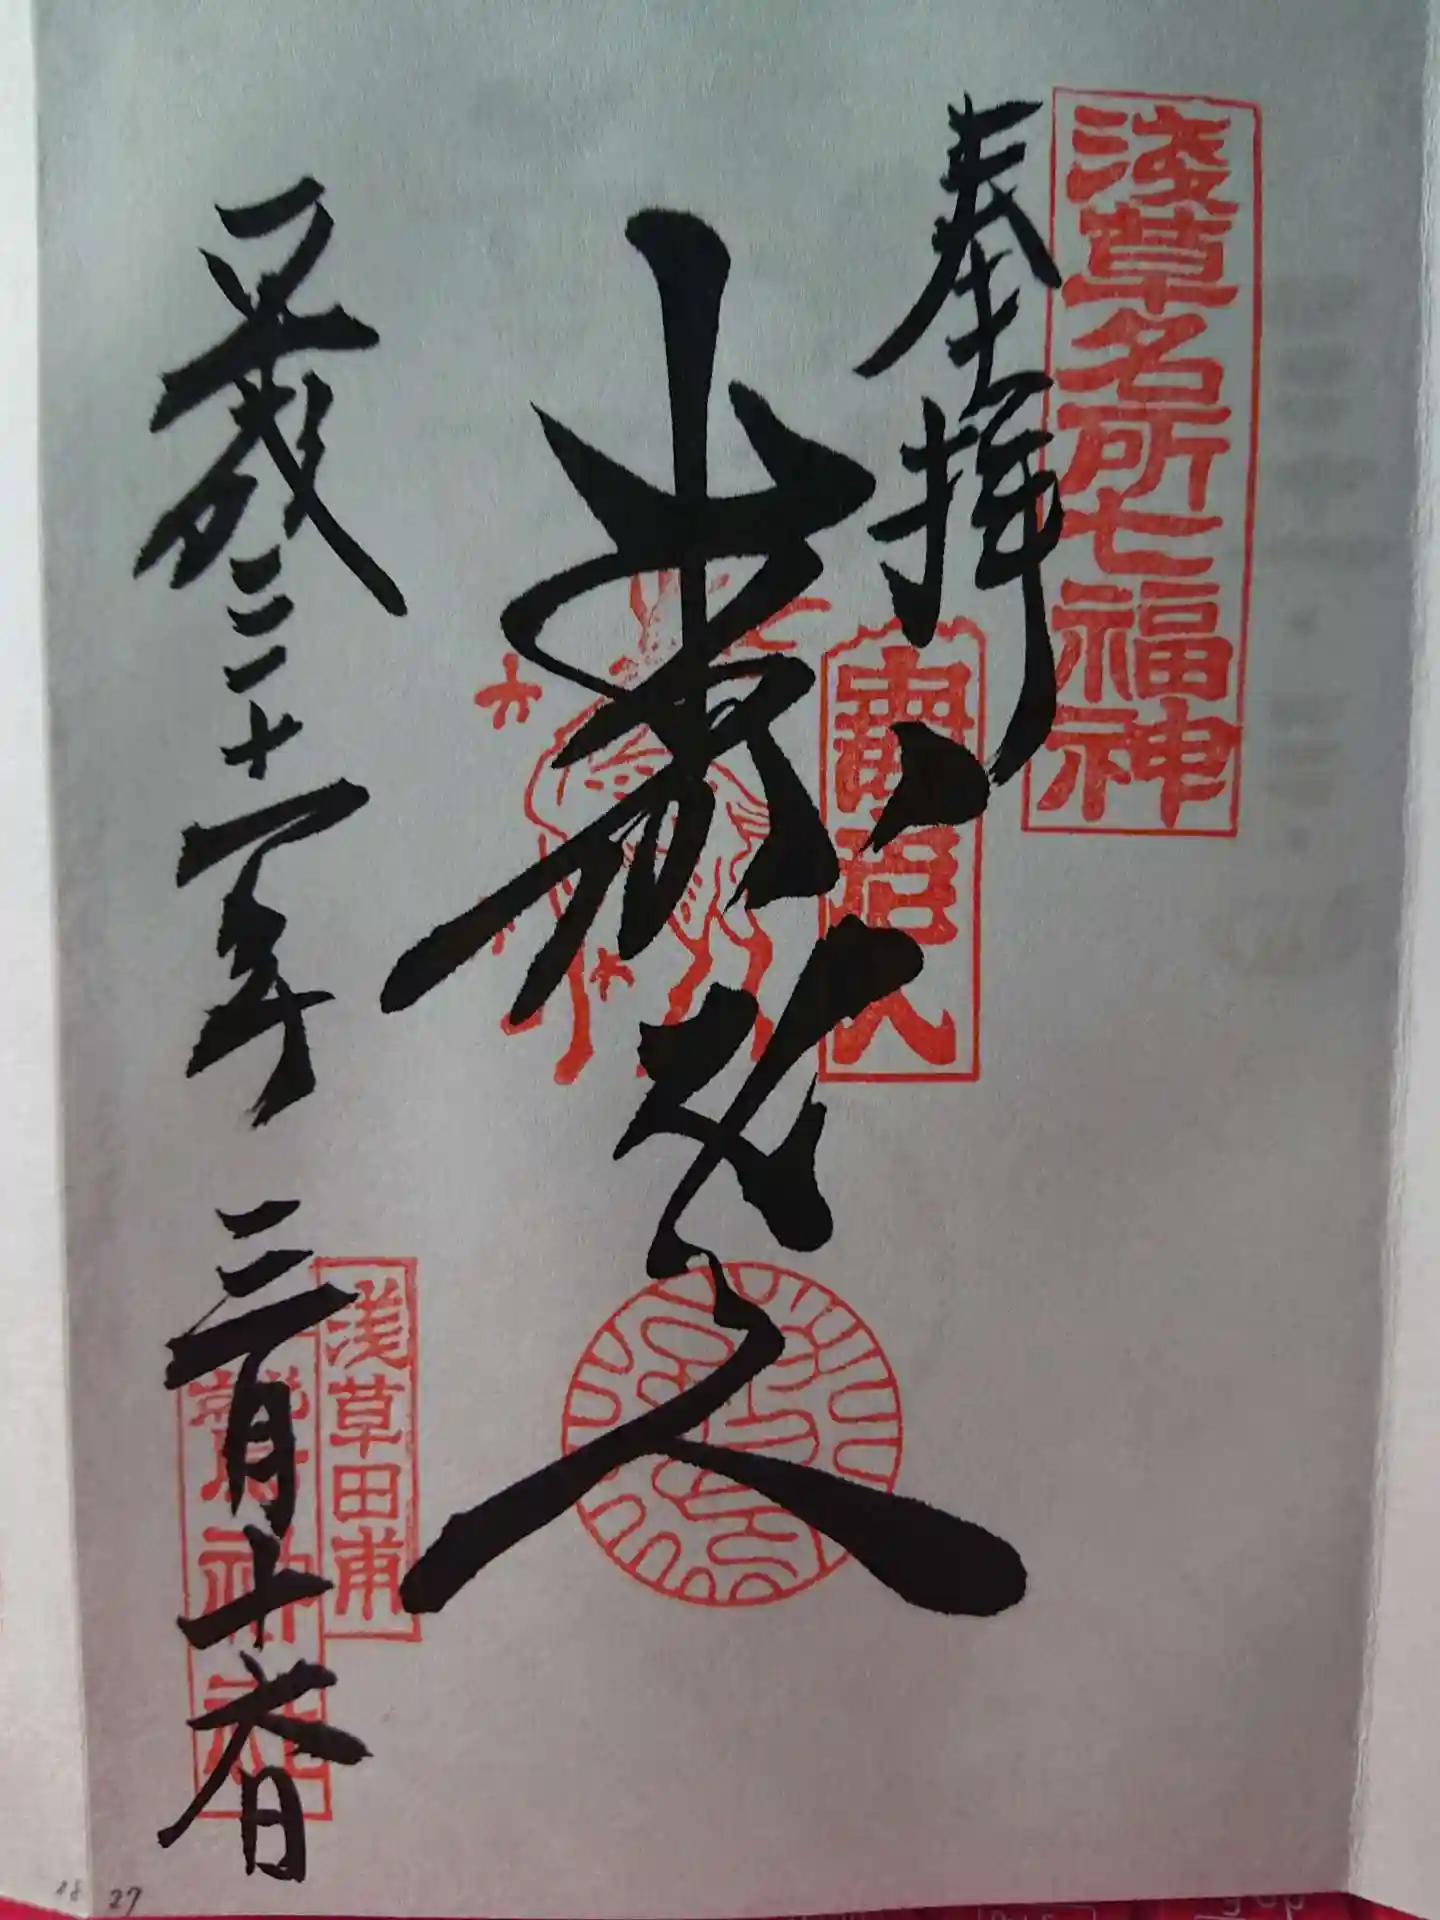 浅草名所七福神
奉拝
壽老人
壽老人
平成三十一年三月十六日
浅草田甫
鷲神社
27